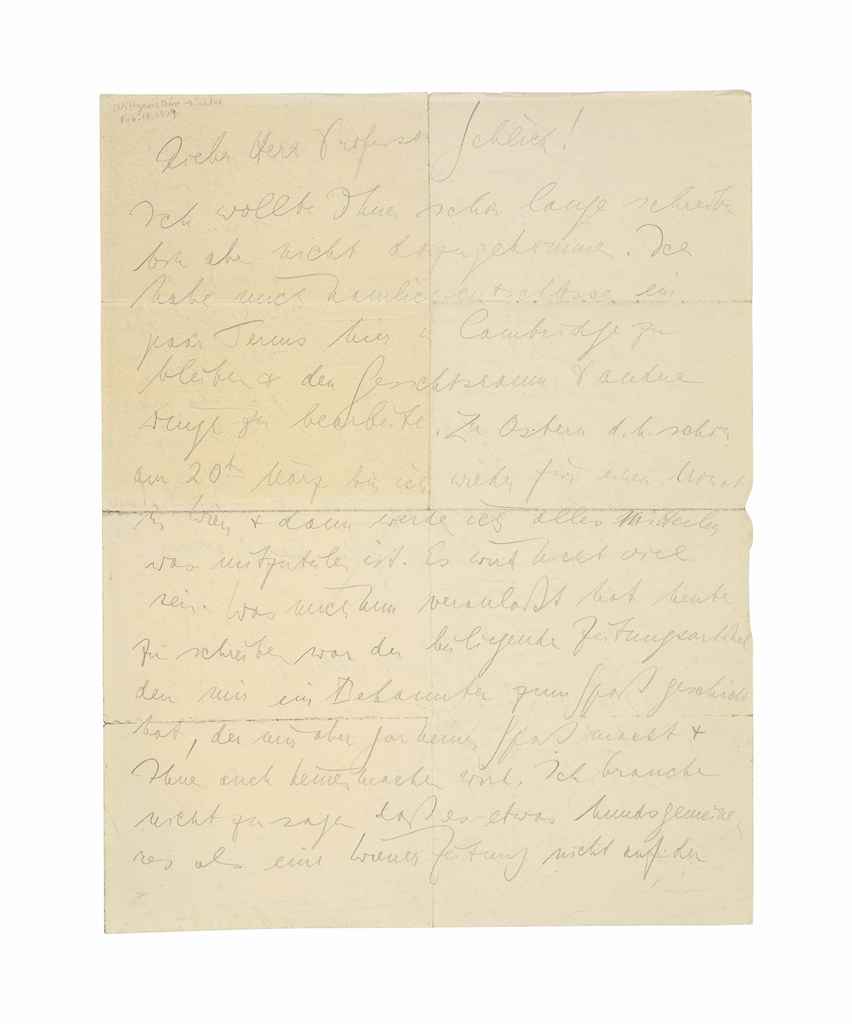 Lieber Herr Professor Schlick!
Ich wollte Ihnen schon lange schreiben
bin aber nicht dazugekommen. Ich
habe mich nämlich entschlossen ein
paar Terms hier in Cambridge zu
bleiben & den Gesichtsraum & andere
Dinge zu bearbeiten. Zu Ostern d.h. schon
am 20ten März bin ich wieder für einen Monat
in Wien & dann werde ich alles mitteilen
was mitzuteilen ist. Es wird nicht viel
sein. Was mich nun veranlaßt hat heute
zu schreiben war der beiliegende Zeitungsartikel
den mir ein Bekannter zum Spaß geschickt
hat, der mir aber gar keinen Spaß macht &
Ihnen auch keinen machen wird. Ich brauche
nicht zu sagen daß es etwas hundsgemeine-
res als eine Wiener Zeitung nicht auf der